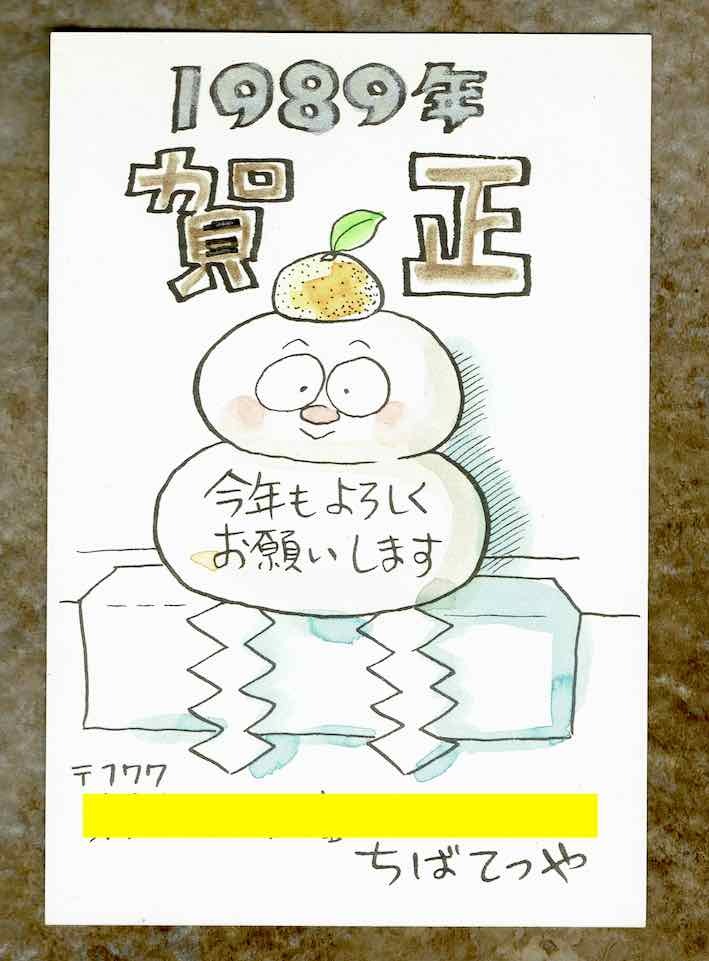 1989年
賀正
今年もよろしく
お願いします
〒177
ちばてつや